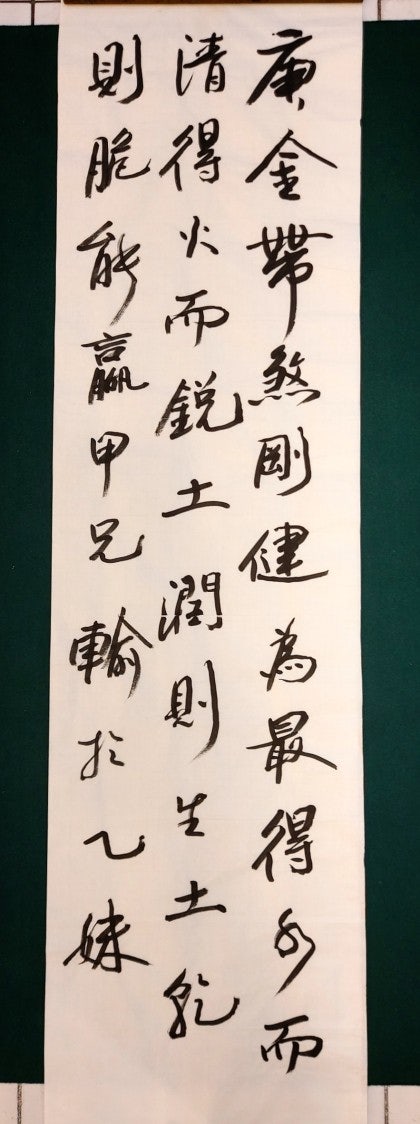 庚金帶煞剛健為最得水而
清得火而銳土潤則生土乾
則脆能贏甲兄輸於乙妹